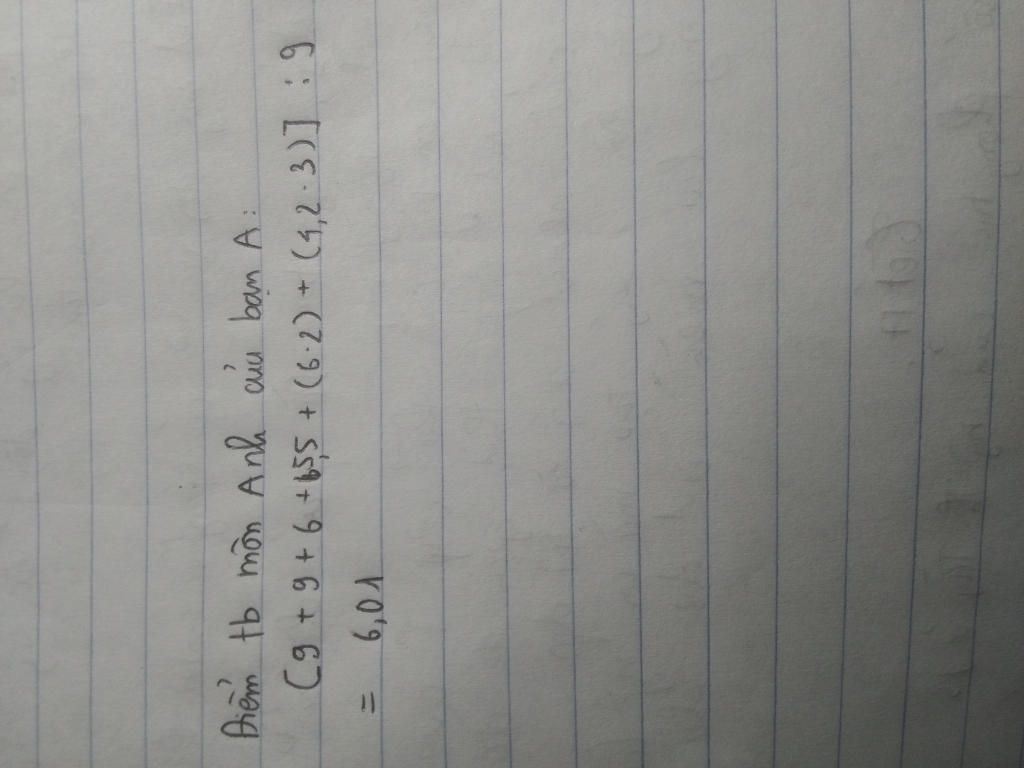 Điểm tb môn Anh của bạn A:
[9 + 9 + 6 + 5,5 + (6.2) + (4,2.3)] : 9
= 6,01